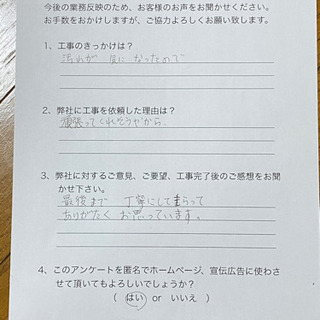 今後の業務反映のため、お客様のお声をお聞かせください。
お手数をおかけしますが、ご協力よろしくお願い致します。
1、工事のきっかけは?
汚れが 気に なったので
2、弊社に工事を依頼した理由は?
頑張ってくれそうやから
3、弊社に対するご意見、ご要望、工事完了後のご感想をお聞
かせ下さい。
最後まで 丁寧にして もらって
ありがたく お思っています。
4、このアンケートを匿名でホームページ、宣伝広告に使わさ
せて頂いてもよろしいでしょうか?
( はい or いいえ )